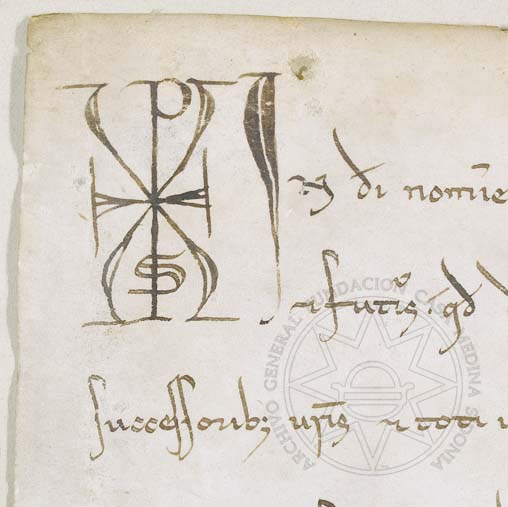 IN dī nom̄e
⁊ fut̄is . qđ
successorib; ur̄is ⁊ toti
ARCHIVO GENERAL FUNDACION CASA MEDINA SIDONIA